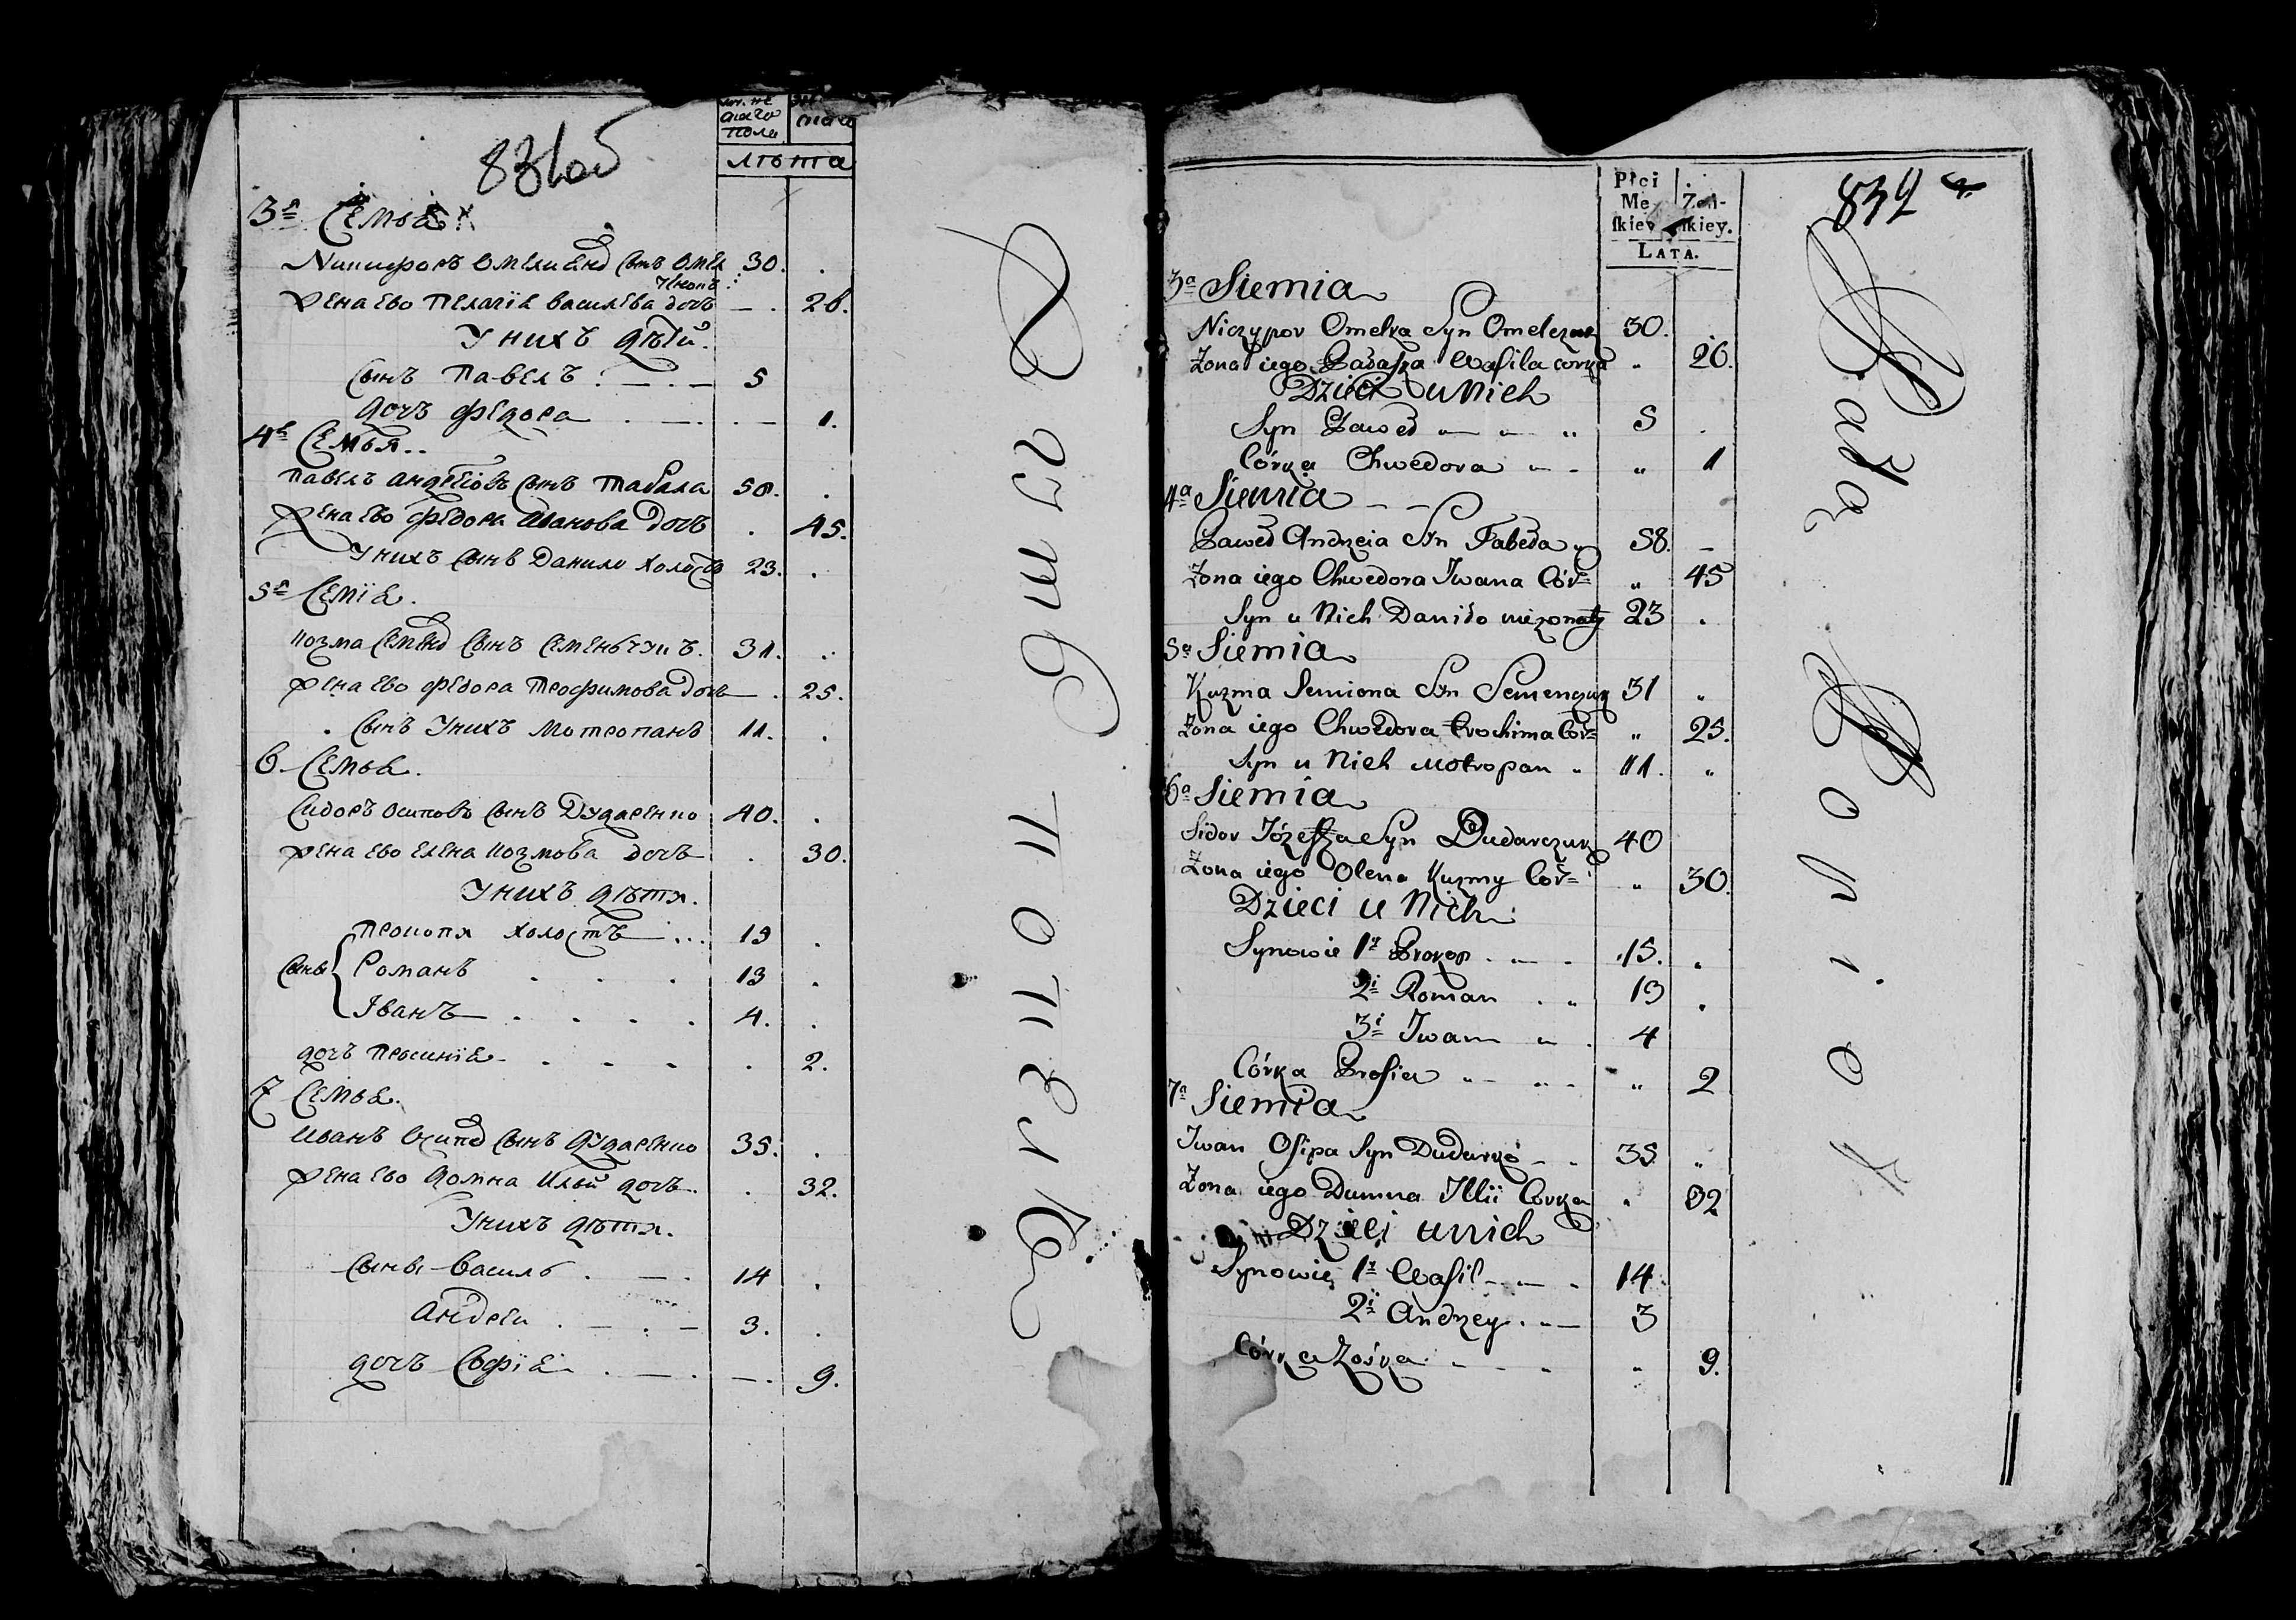 831 об
пола
лѣта
3я Семья
Никифоръ Омелиановъ сынъ Омел
чкопъ
Жена ево Пелагiя Василева дочь 26.
У нихъ дѣтй.
Сынъ Павелъ 5
дочь Федора 1.
4я Семья
Павелъ Андреiовъ сынъ Табала 58.
Жена ево Федора Иванова дочь 45.
У нихъ сынъ Данило холостъ 23.
5я Семiя.
Козма Семеновъ сынъ Семенчукъ. 31.
Жена ево Федора Трофимова дочь 25.
Сынъ у нихъ Мотропанъ 11.
6 Семья.
Сидоръ Осиповъ сынъ Дударенко 40.
Жена ево Елена Козмова дочь 30.
У нихъ дѣтя.
Прокопя холостъ 15
Сынь Романъ 13
Іванъ 4.
дочь Просинiя 2.
7 Семья.
Иванъ Осиповъ сынъ Дударенко 35.
Жена ево Домна Ильи дочь. 32.
У нихъ дѣтя.
Сынь Василь 14
Андреи 3.
дочь Софiя 9.
832
Płci
Mę- Żeń-
ſkiey ſkiey.
LATA.
3a Siemia
Niczypor Omelka Syn Omelczuk 30.
Żona iego Wasila córka 26.
Dzieci u Nich
Syn Paweł 5
Córka Chwedora 1
4a Siemia
Paweł Andrzeia Syn Tabeda 58.
Żona iego Chwedora Iwana Cór= 45
Syn u Nich Daniło nieżonaty 23
5a Siemia
Kuzma Semiona Syn Semenczuk 31
Żona iego Chwedora Trochima Cór= 25.
Syn u Nich Motropan 11.
6a Siemia
Sidor Józefka Syn Dudarczuk 40
Żona iego Olena Kuzmy Cór= 30.
Dzieci u Nich
Synowie 1y Prokop 15.
2i Roman 13
3i Iwan 4
Córka Prosia 2
7a Siemia
Iwan Osipa Syn Dudarko 35
Żona iego Dumna Illii Córka 32
Dzieci u nich
Synowie 1y Wasil 14
2i Andrzey 3
Córka Zośka 9.